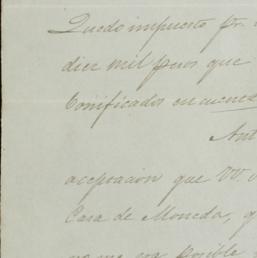 Quedo impuesto pr.
diez mil pesos que
bonificados en
Ant
aceptacion que VV.
Casa de Moneda, q
no me sea posible